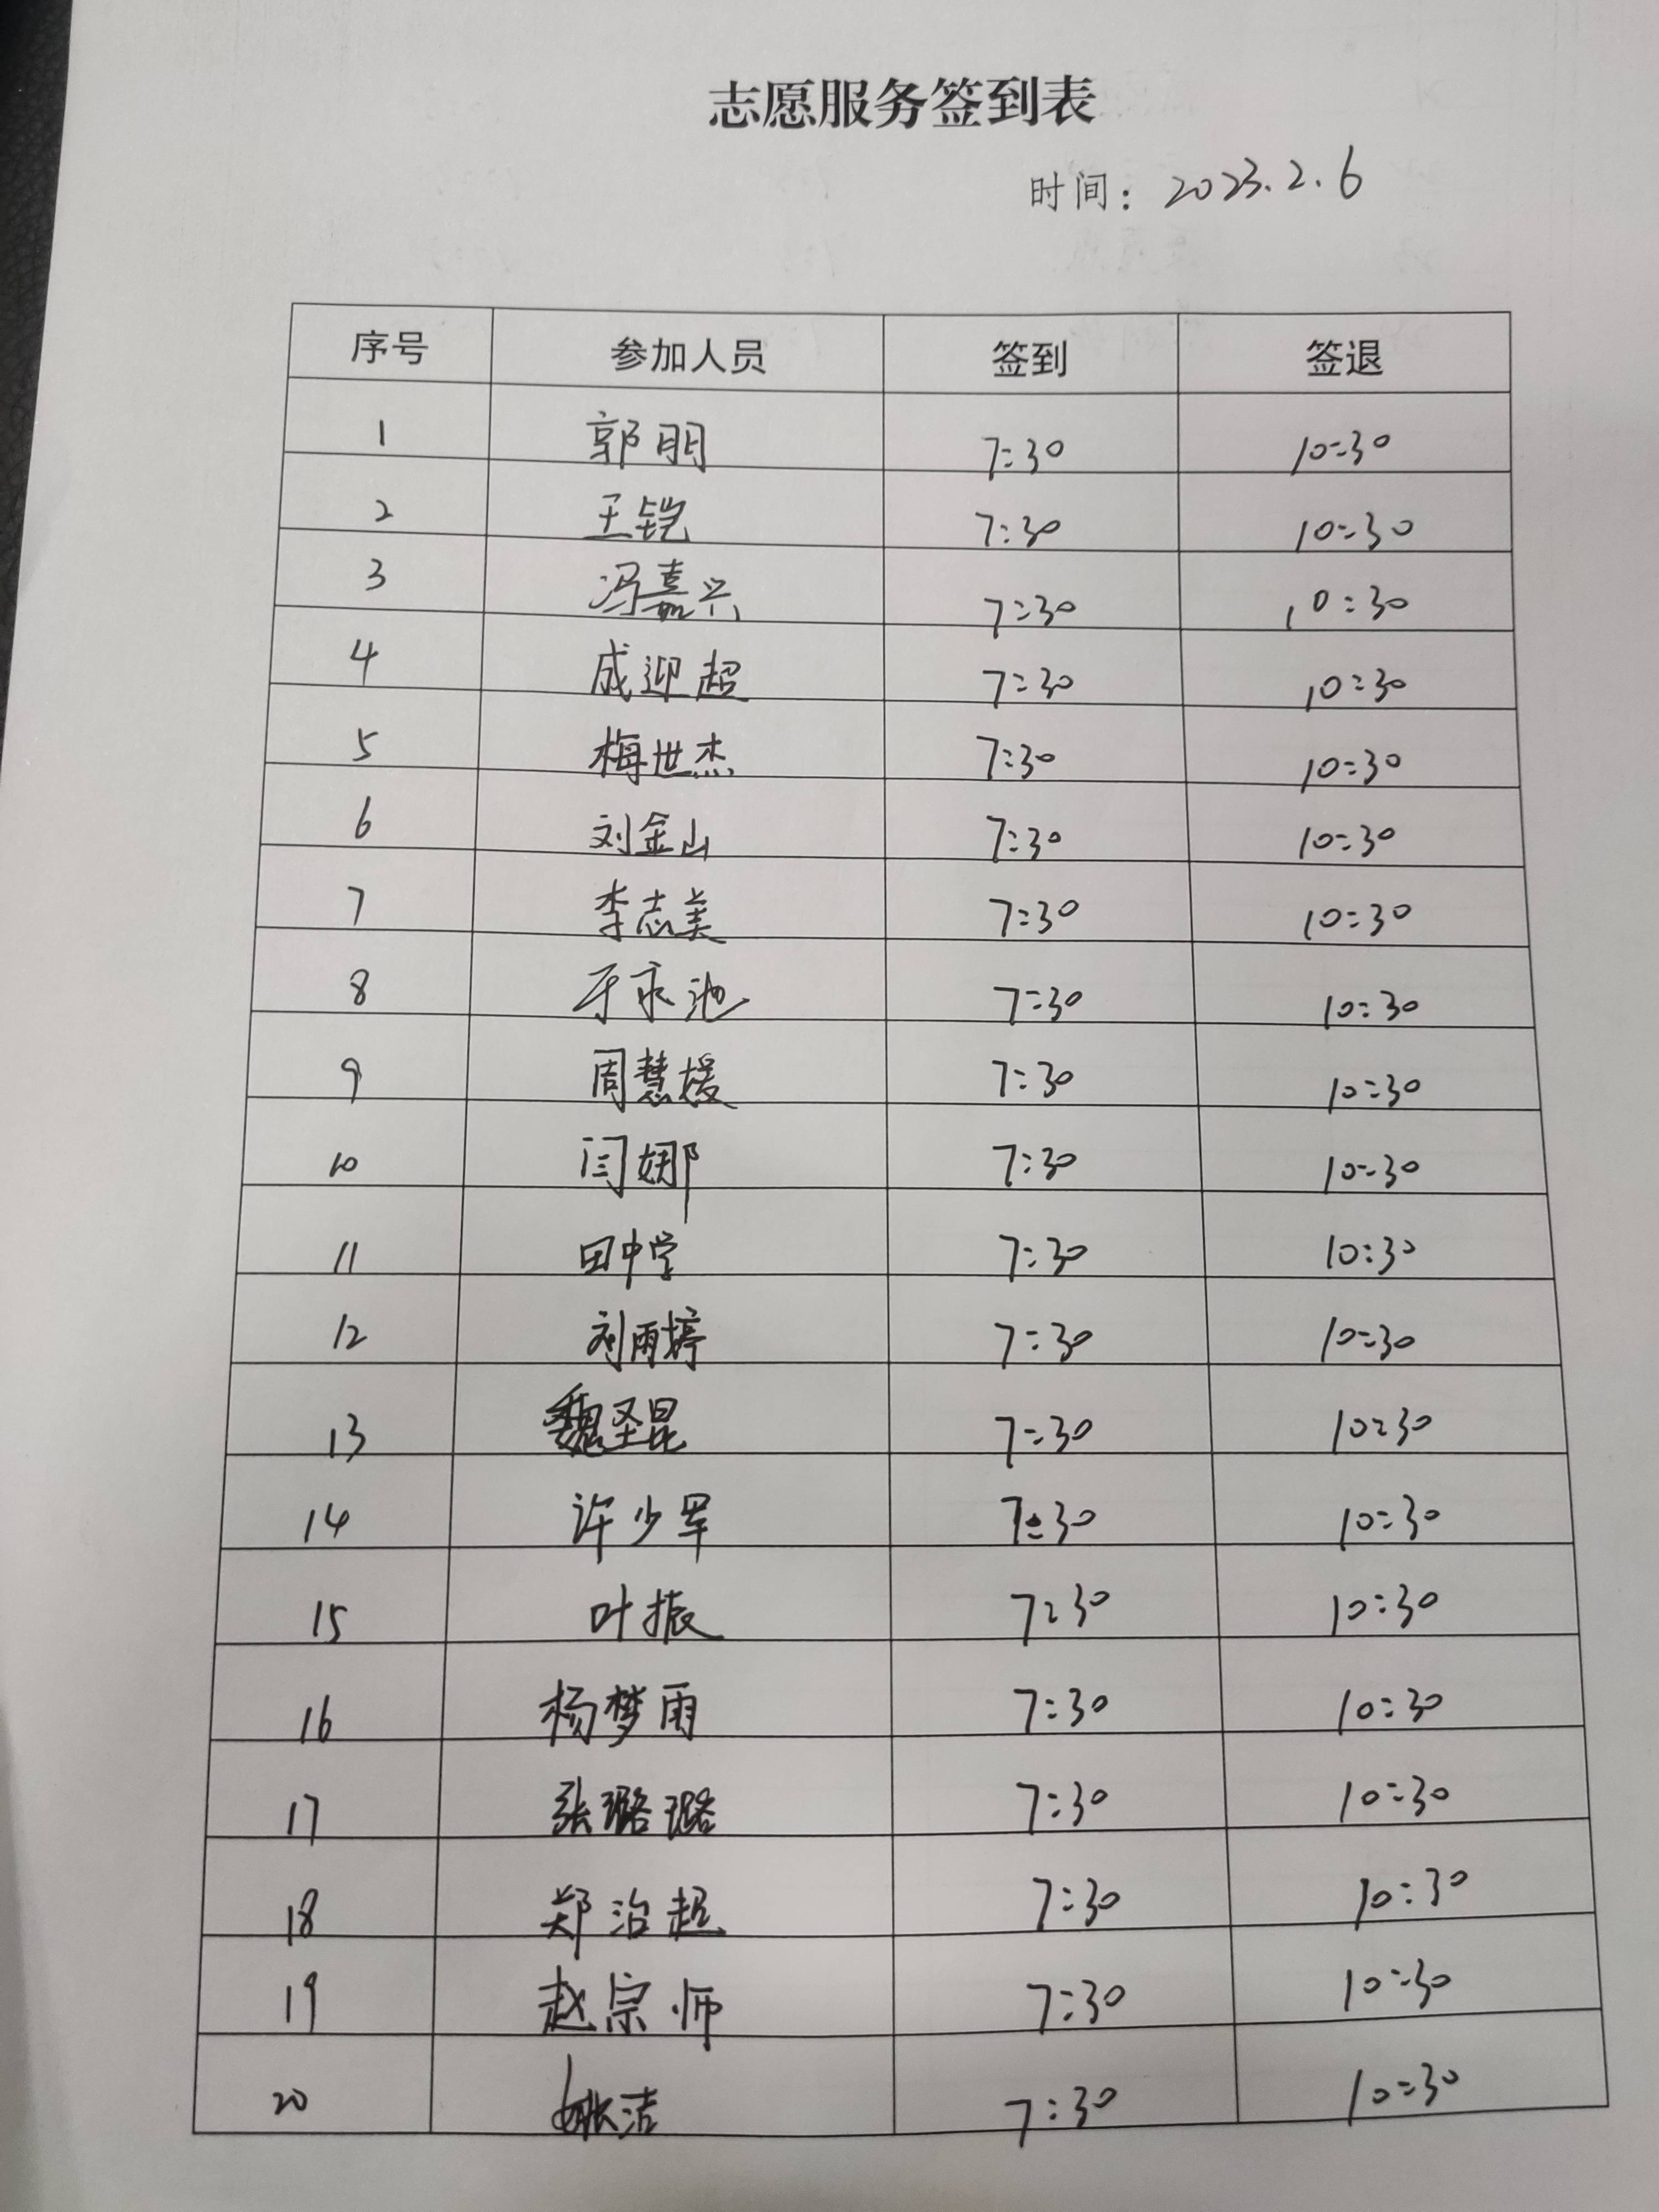 志愿服务签到表
时间：2023.2.6
序号 参加人员 签到 签退
1 郭朋 7:30 10:30
2 王铠 7:30 10:30
3 冯嘉兴 7:30 10:30
4 成迎超 7:30 10:30
5 梅世杰 7:30 10:30
6 刘金山 7:30 10:30
7 李志美 7:30 10:30
8 于永池 7:30 10:30
9 周慧媛 7:30 10:30
10 闫娜 7:30 10:30
11 田中学 7:30 10:30
12 刘雨婷 7:30 10:30
13 魏圣昆 7:30 10:30
14 许少军 7:30 10:30
15 叶振 7:30 10:30
16 杨梦雨 7:30 10:30
17 张璐璐 7:30 10:30
18 郑治超 7:30 10:30
19 赵宗师 7:30 10:30
20 姚洁 7:30 10:30